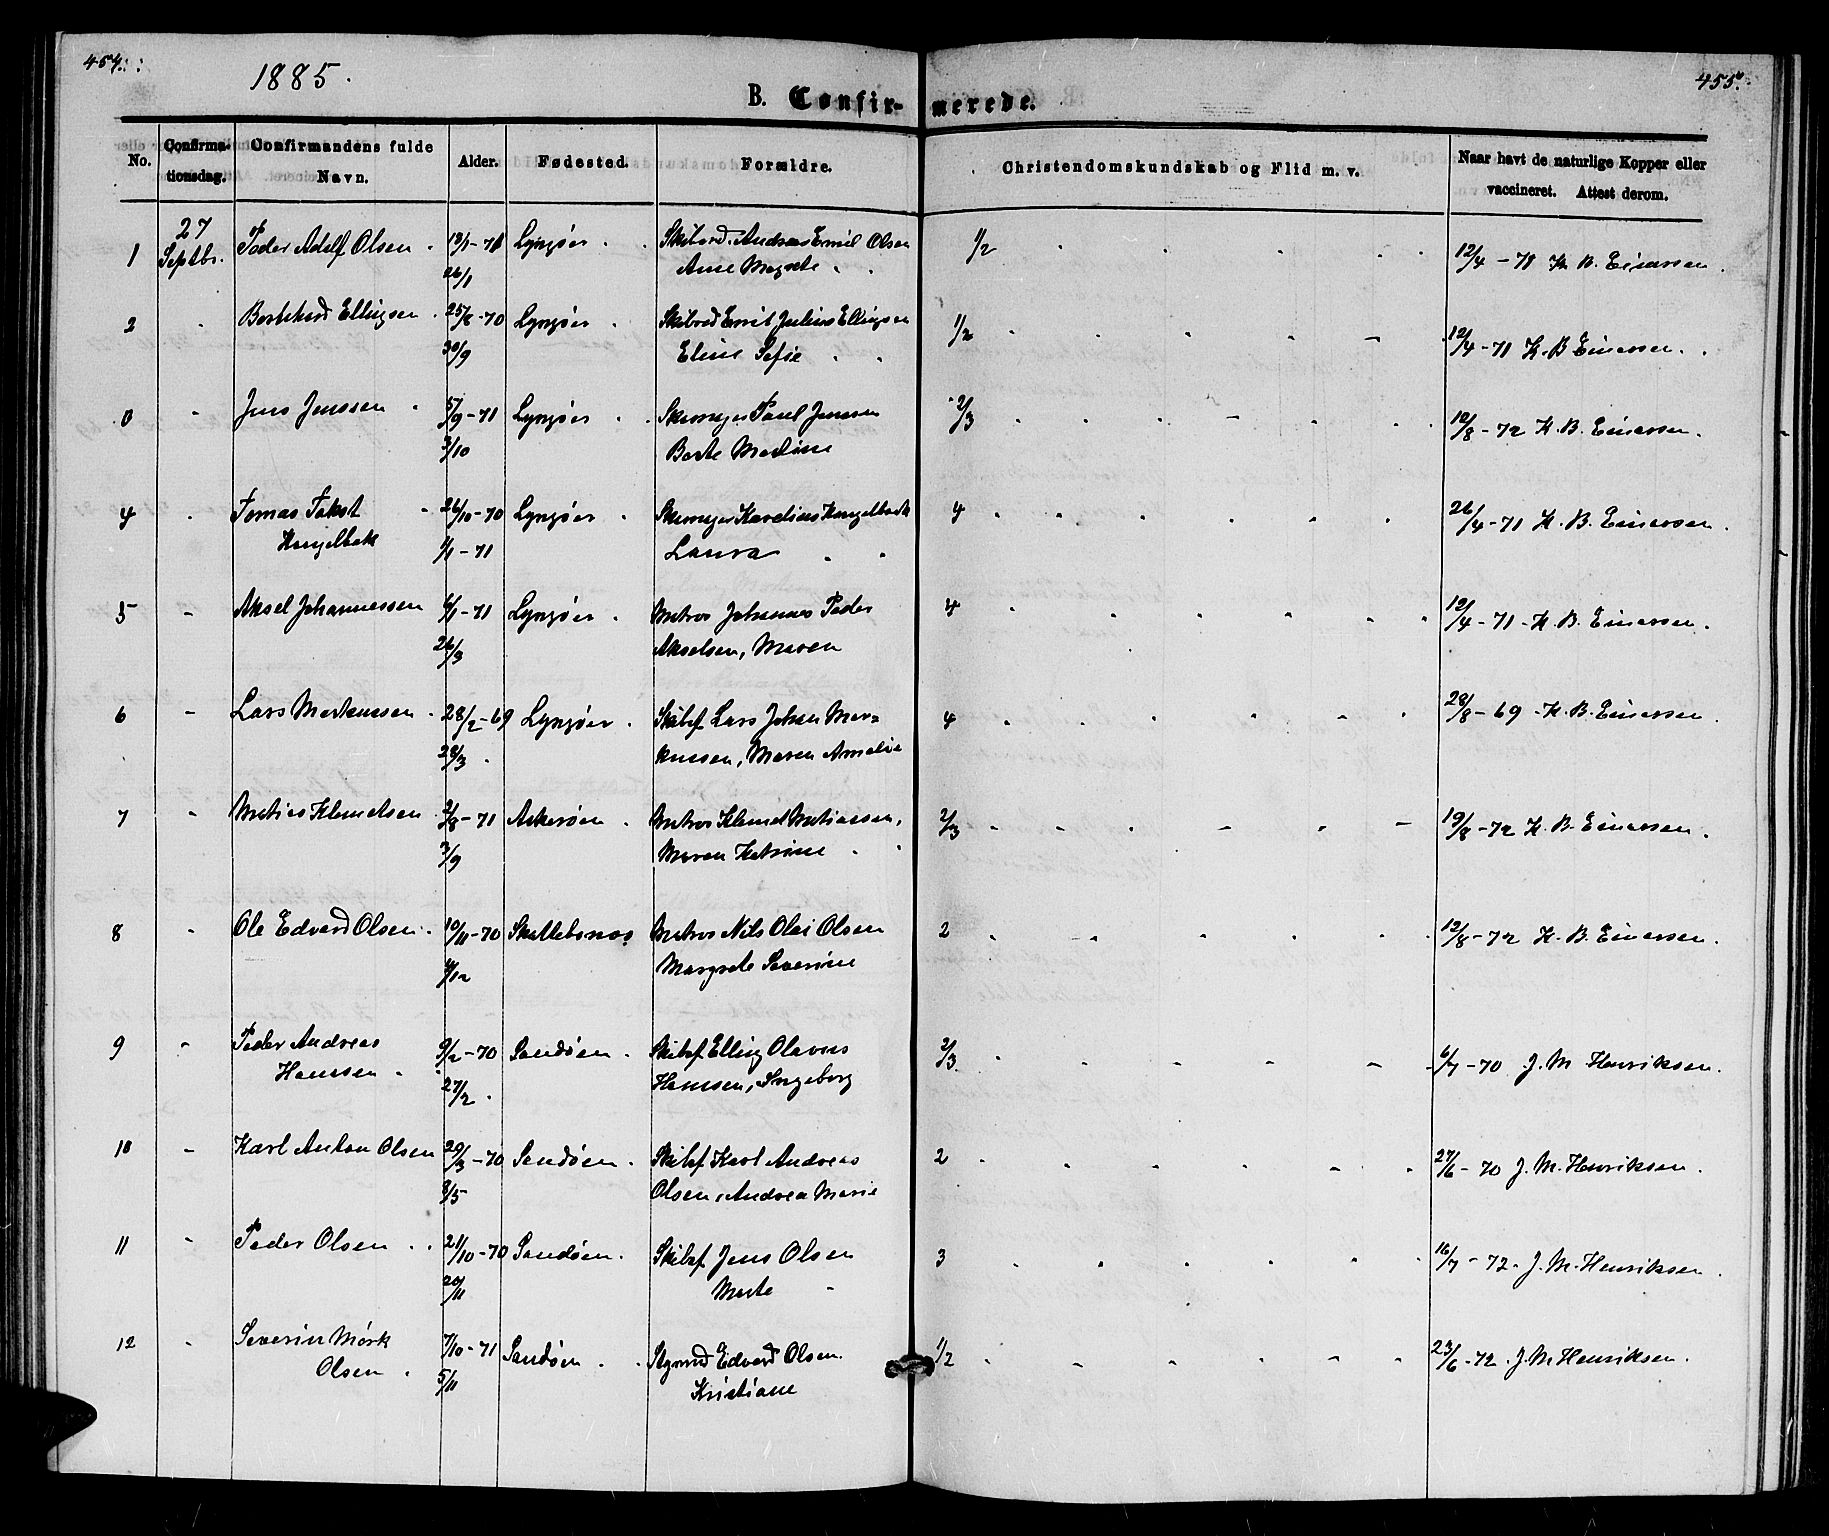 454. 455.
1885.
B. Confirmerede.
No. Confirmationsdag. Confirmandens fulde Navn. Alder. Fødested. Forældre. Christendomskundskab og Flid m. v. Naar havt de naturlige Kopper eller vaccineret. Attest derom.
1 27 Septbr. Peder Adolf Olsen Lyngøer Andreas Emil Olsen 1/2 12/4 - 71 K. B. Einersen.
26/1 Ane Magrete
2 " Ellingsen 25/8 - 70 Lyngøer Julius Ellingsen 1/2 12/4 - 71 K. B. Einersen.
30/9 Eline Sofie
" Jens Jenssen 5/9 - 71 Lyngøer Poul Jenssen 2/3 12/8 - 72 K. B. Einersen.
3/10
4 " Tomas 26/10 - 70 Lyngøer 4 26/4 - 71 K. B. Einersen.
1/1 - 71 Laura
5 " Aksel Johannessen 6/1 - 71 Lyngøer Matros Johannes Peder 4 12/4 - 71 - K. B. Einersen.
26/3 Akselsen, Maren
6 " Lars Markussen 28/2 - 69 Lyngøer Skibsf Lars Johan Mar= 4 28/8 - 69 - K. B. Einersen.
28/3 kussen, Maren Amalie
7 " Matias Klemetsen 2/8 - 71 Askerøen Matros Klemet Matiassen, 2/3 19/8 - 72 K. B. Einersen.
3/9 Maren Katrine
8 " Ole Edvard Olsen 10/11 - 70 Matros Nils Olai Olsen 2 12/8 - 72 K. B. Einersen.
4/12 Margrete Severine
9 " Peder Andreas 9/2 - 70 Sandøen Skibsf Elling Olavus 2/3 6/7 - 70 J. M Henriksen.
Hanssen 27/2 Hanssen, Ingeborg
10 " Karl Anton Olsen 20/3 - 70 Sandøen Skibsf Karl Andreas 2 27/6 - 70 J. M. Henriksen.
8/5 Olsen, Andrea Marie
11 " Peder Olsen 21/10 - 70 Sandøen Skibsf Jens Olsen 3 16/7 - 72. J. M. Henriksen.
20/11
12 " Severin Mørk 7/10 - 71 Sandøen Edvard Olsen 1/2 23/6 - 72. J. M. Henriksen.
Olsen 5/11 Kristiane